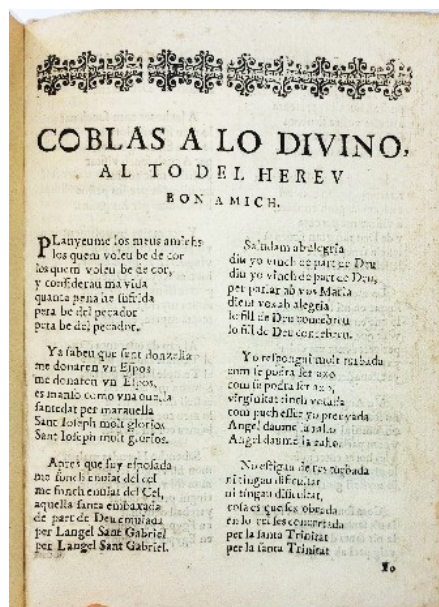 COBLAS A LO DIVINO,
AL TO DEL HEREV
BON AMICH.
PLanyeume los meus amichs
los quem voleu be de cor
los quem voleu be de cor,
y considerau ma vida
quanta pena he sufrida
pera be del pecador
pera be del pecador.
Ya sabeu que sent donzella
me donaren vn Espos
me donaren vn Espos,
es manso como vna ouella
santedat per marauella
Sant Ioseph molt glorios
Sant Ioseph molt glorios.
Apres que fuy esposada
me fonch enuiat del cel
me fonch enuiat del Cel,
aquella santa embaxada
de part de Deu emuiada
per Langel Sant Gabriel
per Langel Sant Gabriel.
Saludam ab alegria
diu yo vinch de part de Deu
diu yo vinch de part de Deu,
per parlar ab vos Maria
dient vos ab alegria
lo fill de Deu concebreu
lo fill de Deu concebreu.
Yo respongui molt turbada
com se podra fer axo
com se podra fer axo,
virginitat tinch votada
com puch esser yo prenyada
Angel daume la raho
Angel daume la raho.
No estigau de res torbada
ni tingau dificultat
ni tingau dificultat,
cosa es que obrada
en lo cel es concertada
per la santa Trinitat
per la santa Trinitat
Yo